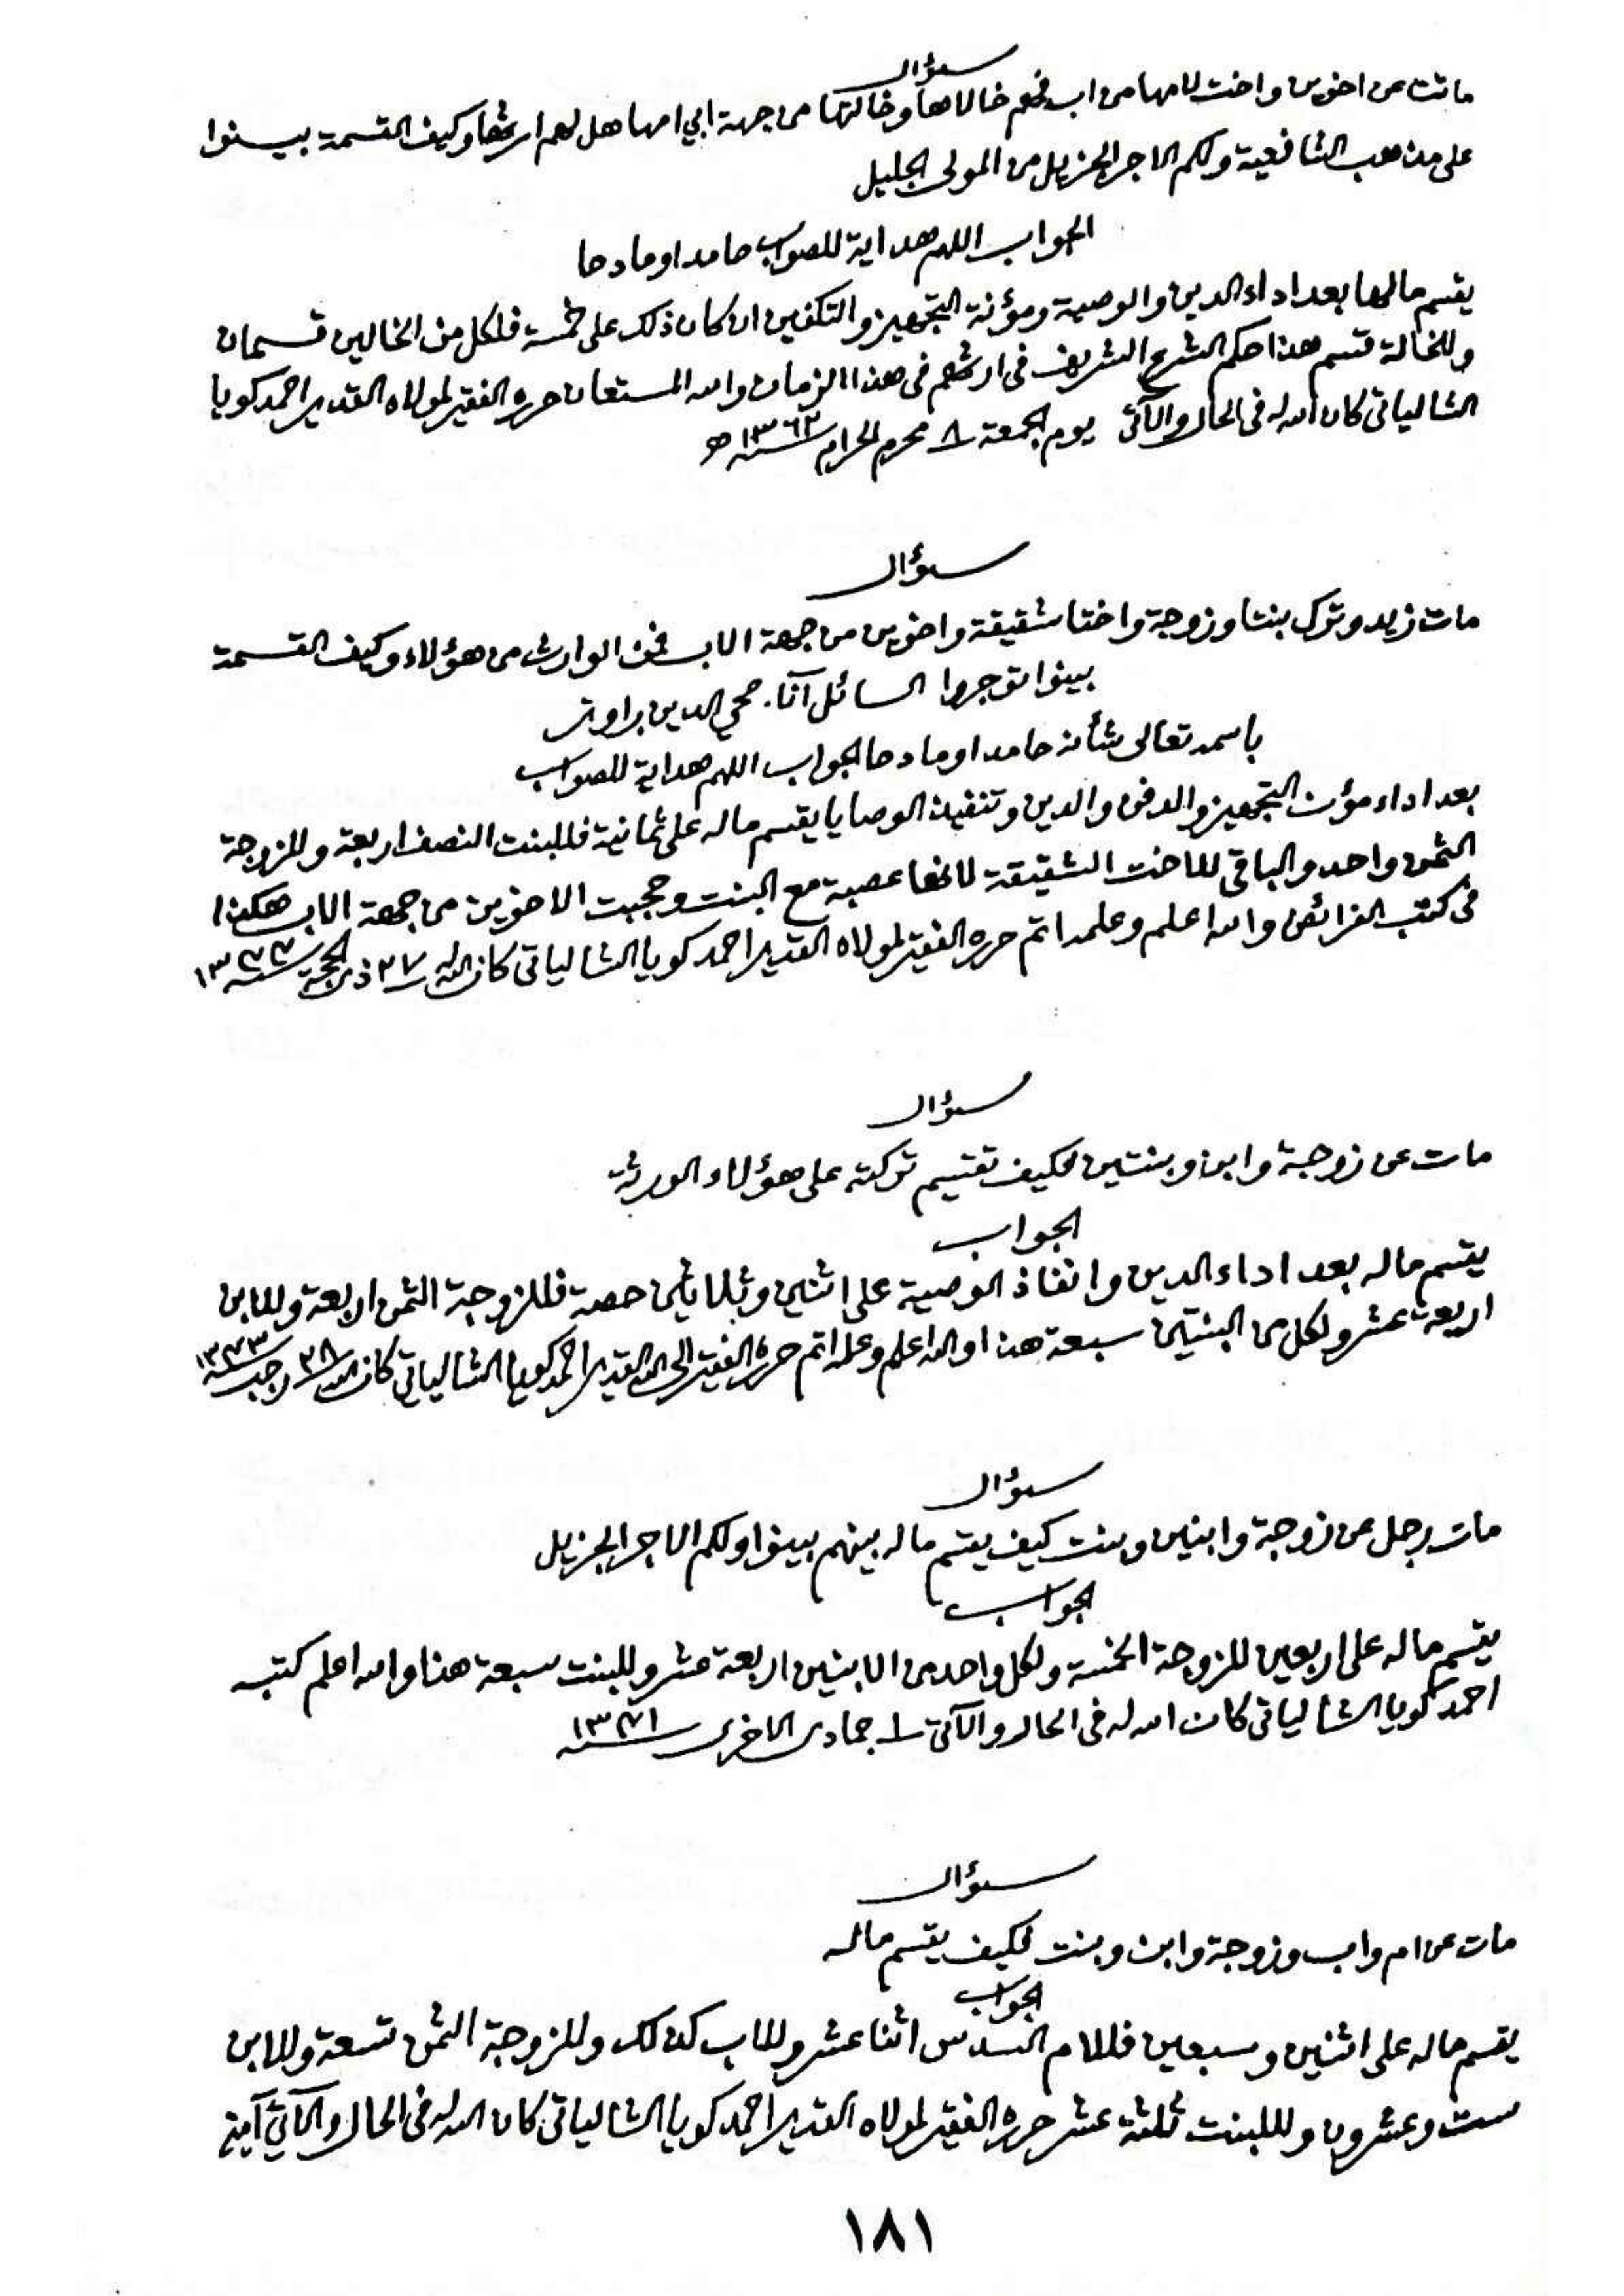 سؤال
ماتت عن اخوين واخت لامها من اب فهم خالاها وخالتها من جهة ابي امها هل لهم ارثها وكيف القسمة بينوا
على مذهب الشافعية ولكم الاجر الجزيل من المولى الجليل
الجواب اللهم هداية للصواب حامدا ومادحا
يقسم مالها بعد اداء الدين والوصية ومؤنة التجهيز والتكفين ان كان ذلك على خمسة فلكل من الخالين قسمان
وللخالة قسم هذا حكم الشرع الشريف في ارثهم في هذا الزمان والله المستعان حرره الفقير لمولاه القدير احمد كويا
الشالياتي كان الله له في الحال والآتي يوم الجمعة ٨ محرم الحرام سنة ١٣٦٣ ھ
سؤال
مات زيد وترك بنتا وزوجة واختا شقيقة واخوين من جهة الاب فمن الوارث من هؤلاء وكيف القسمة
بينوا توجروا السائل آنا. محي الدين براوتر
باسمه تعالى شأنه حامدا ومادحا الجواب اللهم هداية للصواب
بعد اداء مؤن التجهيز والدفن والدين وتنفيذ الوصايا يقسم ماله على ثمانية فللبنت النصف اربعة وللزوجة
الثمن واحد والباقي للاخت الشقيقة لانها عصبة مع البنت وحجبت الاخوين من جهة الاب هكذا
في كتب الفرائض والله اعلم وعلمه اتم حرره الفقير لمولاه القدير احمد كويا الشالياتي كان الله له ٢٧ ذي الحجة سنة
سؤال
مات عن زوجة وابن وبنتين فكيف تقتسم تركته على هؤلاء الورثة
الجواب
يقسم ماله بعد اداء الدين وانفاذ الوصية على اثنين وثلاثين حصة فللزوجة الثمن اربعة وللابن
اربعة عشر ولكل من البنتين سبعة هذا والله اعلم وعلمه اتم حرره الفقير الى الله القدير احمد كويا الشالياتي كان الله له ٢٨ رجب سنة ١٣٧٣
سؤال
مات رجل عن زوجة وابنين وبنت كيف يقسم ماله بينهم بينوا ولكم الاجر الجزيل
الجواب
يقسم ماله على اربعين للزوجة الخمسة ولكل واحد من الابنين اربعة عشر وللبنت سبعة هذا والله اعلم كتبه
احمد كويا الشالياتي كان الله له في الحال والآتي ١ جمادى الاخرى سنة ١٣٧١
سؤال
مات عن ام واب وزوجة وابن وبنت فكيف يقسم ماله
الجواب
يقسم ماله على اثنين وسبعين فللام السدس اثنا عشر وللاب كذلك وللزوجة الثمن تسعة وللابن
ست وعشرون وللبنت ثلثة عشر حرره الفقير لمولاه القدير احمد كويا الشالياتي كان الله له في الحال والآتي آمين
١٨١